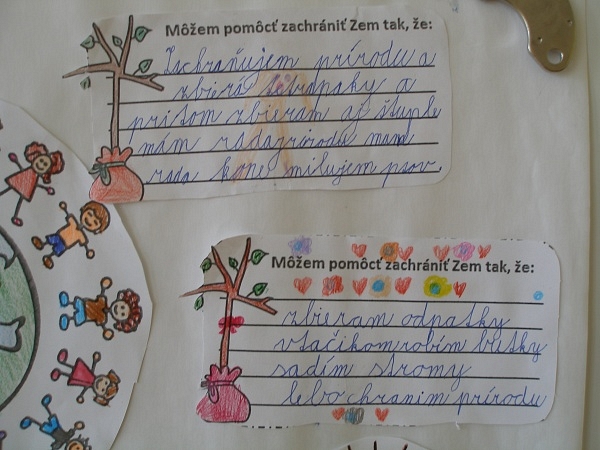 Môžem pomôcť zachrániť Zem tak, že:
prírodu a
zbira a
pritom zbieram aj
mám rada prírodu mam
rada kone milujem psov.
Môžem pomôcť zachrániť Zem tak, že:
zbieram odpatky
vtačikom robím butky
sadím stromy
lebo chranim prírodu